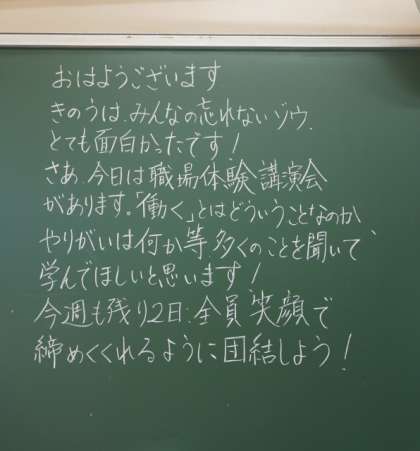 おはようございます
きのうは、みんなの忘れないゾウ、
とても面白かったです！
さあ、今日は職場体験講演会
があります。「働く」とはどういうことなのか、
やりがいは何か等、多くのことを聞いて、
学んでほしいと思います！
今週も残り2日、全員笑顔で
締めくくれるように団結しよう！